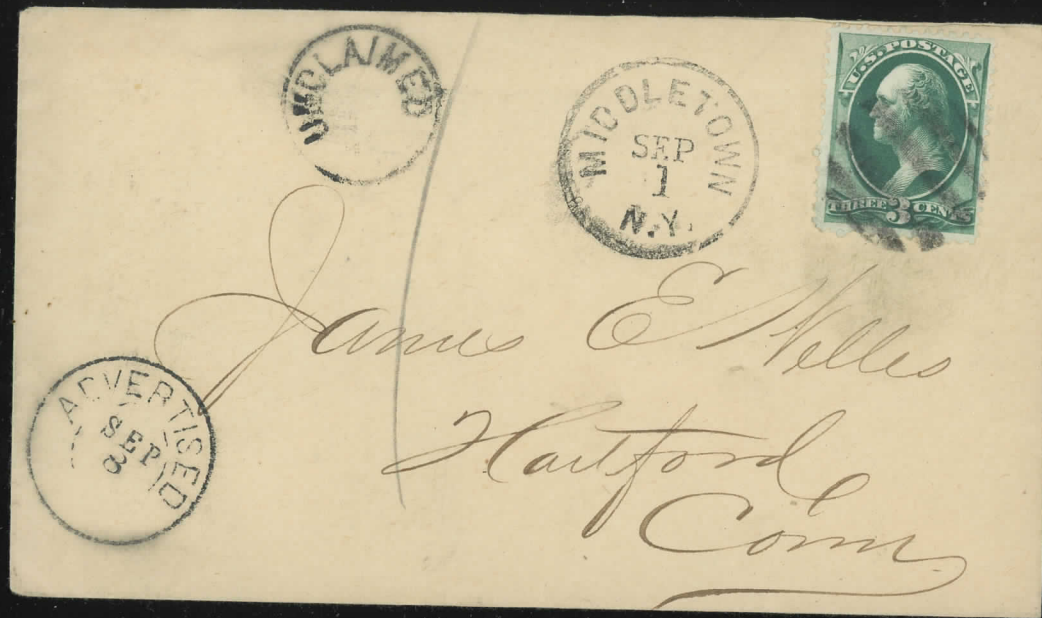 UNCLAIMED
MIDDLETOWN
SEP
1
N.Y.
U.S. POSTAGE
THREE 3 CENTS
James E Welles
Hartford
Conn
ADVERTISED
SEP
8